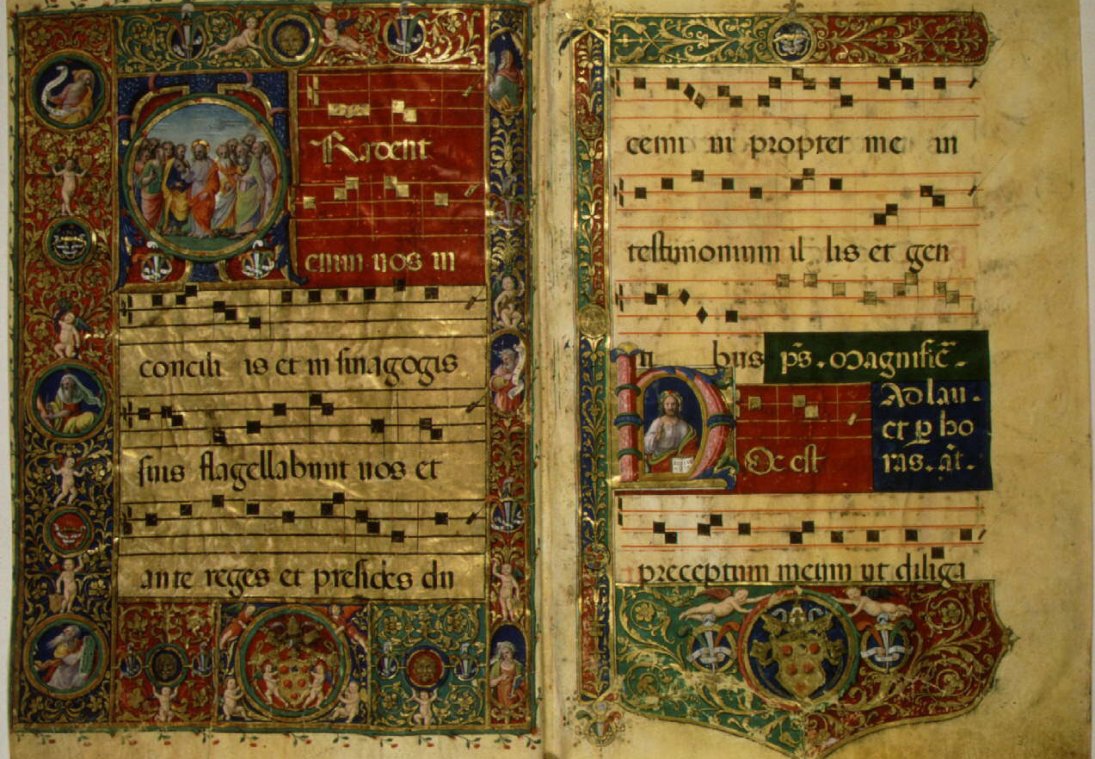 TRadent
enim uos in
concili is et in sinagogis
suis flagellabunt uos et
ante reges et presides du
cemi ni propter me in
testimonium il lis et gen
ti bus pš. Magnific̄.
Ad lau.
et ꝑ ho
ras. an̄.
HOc est
preceptum meum ut diliga